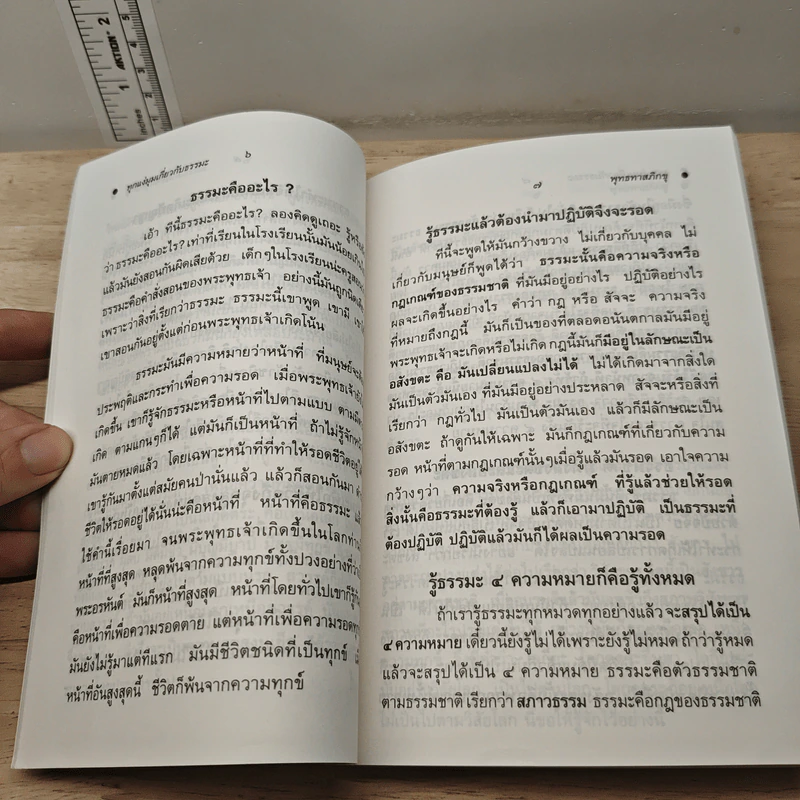 inches 1 AKTION 2
1 2 3 4 5
ทุกแง่มุมเกี่ยวกับธรรมะ ๖
ธรรมะคืออะไร ?
เอ้า ทีนี้ธรรมะคืออะไร? ลองคิดดูเถอะ
ว่า ธรรมะคืออะไร? เท่าที่เรียนในโรงเรียนนั้นมันน้อย
แล้วมันยังสอนกันผิดเสียด้วย เด็กๆในโรงเรียนน่ะครูสอน
ธรรมะคือคำสั่งสอนของพระพุทธเจ้า อย่างนี้มันถูก
เพราะว่าสิ่งที่เรียกว่าธรรมะ ธรรมะนี้เขาพูด เขามี
เขาสอนกันอยู่ตั้งแต่ก่อนพระพุทธเจ้าเกิดโน้น
ธรรมะมันมีความหมายว่าหน้าที่ ที่มนุษย์
ประพฤติและกระทำเพื่อความรอด เมื่อพระพุทธเจ้า
เกิดขึ้น เขาก็รู้จักธรรมะหรือหน้าที่ไปตามแบบ ตาม
เกิด ตามแกนๆก็ได้ แต่มันก็เป็นหน้าที่ ถ้าไม่รู้จัก
มันตายหมดแล้ว โดยเฉพาะหน้าที่ที่ทำให้รอดชีวิต
เขารู้กันมาตั้งแต่สมัยคนป่านั่นแล้ว แล้วก็สอนกันมา
ชีวิตให้รอดอยู่ได้นั่นน่ะคือหน้าที่ หน้าที่คือธรรมะ
ใช้คำนี้เรื่อยมา จนพระพุทธเจ้าเกิดขึ้นในโลก
หน้าที่ที่สูงสุด หลุดพ้นจากความทุกข์ทั้งปวงอย่าง
พระอรหันต์ มันก็หน้าที่สูงสุด หน้าที่โดยทั่วไปเขาก็
คือหน้าที่เพื่อความรอดตาย แต่หน้าที่เพื่อความรอด
มันยังไม่รู้มาแต่ทีแรก มันมีชีวิตชนิดที่เป็นทุกข์
หน้าที่อันสูงสุดนี้ ชีวิตก็พ้นจากความทุกข์
๗ พุทธทาสภิกขุ
รู้ธรรมะแล้วต้องนำมาปฏิบัติจึงจะรอด
ทีนี้จะพูดให้มันกว้างขวาง ไม่เกี่ยวกับบุคคล ไม่
เกี่ยวกับมนุษย์ก็พูดได้ว่า ธรรมะนั้นคือความจริงหรือ
กฎเกณฑ์ของธรรมชาติ ที่มันมีอยู่อย่างไร ปฏิบัติอย่างไร
ผลจะเกิดขึ้นอย่างไร คำว่า กฎ หรือ สัจจะ ความจริง
ที่หมายถึงกฎนี้ มันก็เป็นของที่ตลอดอนันตกาลมันมีอยู่
พระพุทธเจ้าจะเกิดหรือไม่เกิด กฎนี้มันก็มีอยู่ในลักษณะเป็น
อสังขตะ คือ มันเปลี่ยนแปลงไม่ได้ ไม่ได้เกิดมาจากสิ่งใด
มันเป็นตัวมันเอง ที่มันมีอยู่อย่างประหลาด สัจจะหรือสิ่งที่
เรียกว่า กฎทั่วไป มันเป็นตัวมันเอง แล้วก็มีลักษณะเป็น
อสังขตะ ถ้าดูกันให้เฉพาะ มันก็กฎเกณฑ์ที่เกี่ยวกับความ
รอด หน้าที่ตามกฎเกณฑ์นั้นๆเมื่อรู้แล้วมันรอด เอาใจความ
กว้างๆว่า ความจริงหรือกฎเกณฑ์ ที่รู้แล้วช่วยให้รอด
สิ่งนั้นคือธรรมะที่ต้องรู้ แล้วก็เอามาปฏิบัติ เป็นธรรมะที่
ต้องปฏิบัติ ปฏิบัติแล้วมันก็ได้ผลเป็นความรอด
รู้ธรรมะ ๔ ความหมายก็คือรู้ทั้งหมด
ถ้าเรารู้ธรรมะทุกหมวดทุกอย่างแล้ว จะสรุปได้เป็น
๔ ความหมาย เดี๋ยวนี้ยังรู้ไม่ได้เพราะยังรู้ไม่หมด ถ้าว่ารู้หมด
แล้วจะสรุปได้เป็น ๔ ความหมาย ธรรมะคือตัวธรรมชาติ
ตามธรรมชาติ เรียกว่า สภาวธรรม ธรรมะคือกฎของธรรมชาติ